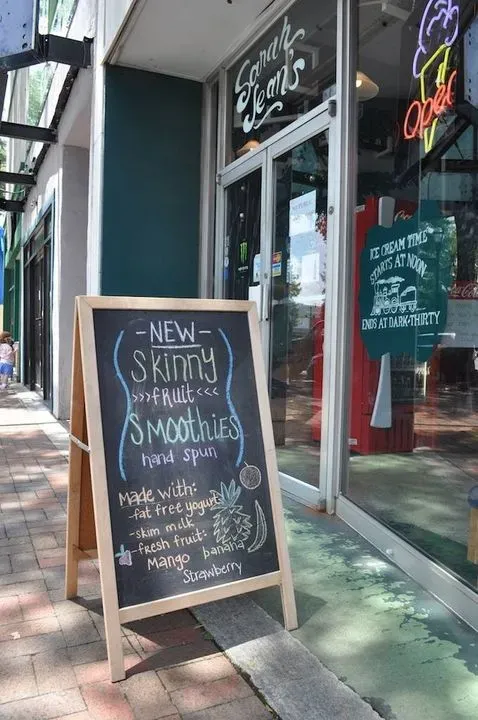 Sarah
Jean's
Open
ICE CREAM TIME
STARTS AT NOON
ENDS AT DARK:THIRTY
-NEW-
Skinny
>>>fruit<<<
Smoothies
hand spun
Made with:
-fat free yogurt
-skim milk
-fresh fruit:
Mango banana
Strawberry